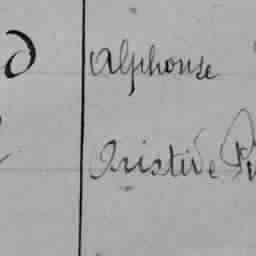 d Alphonse
Aristide